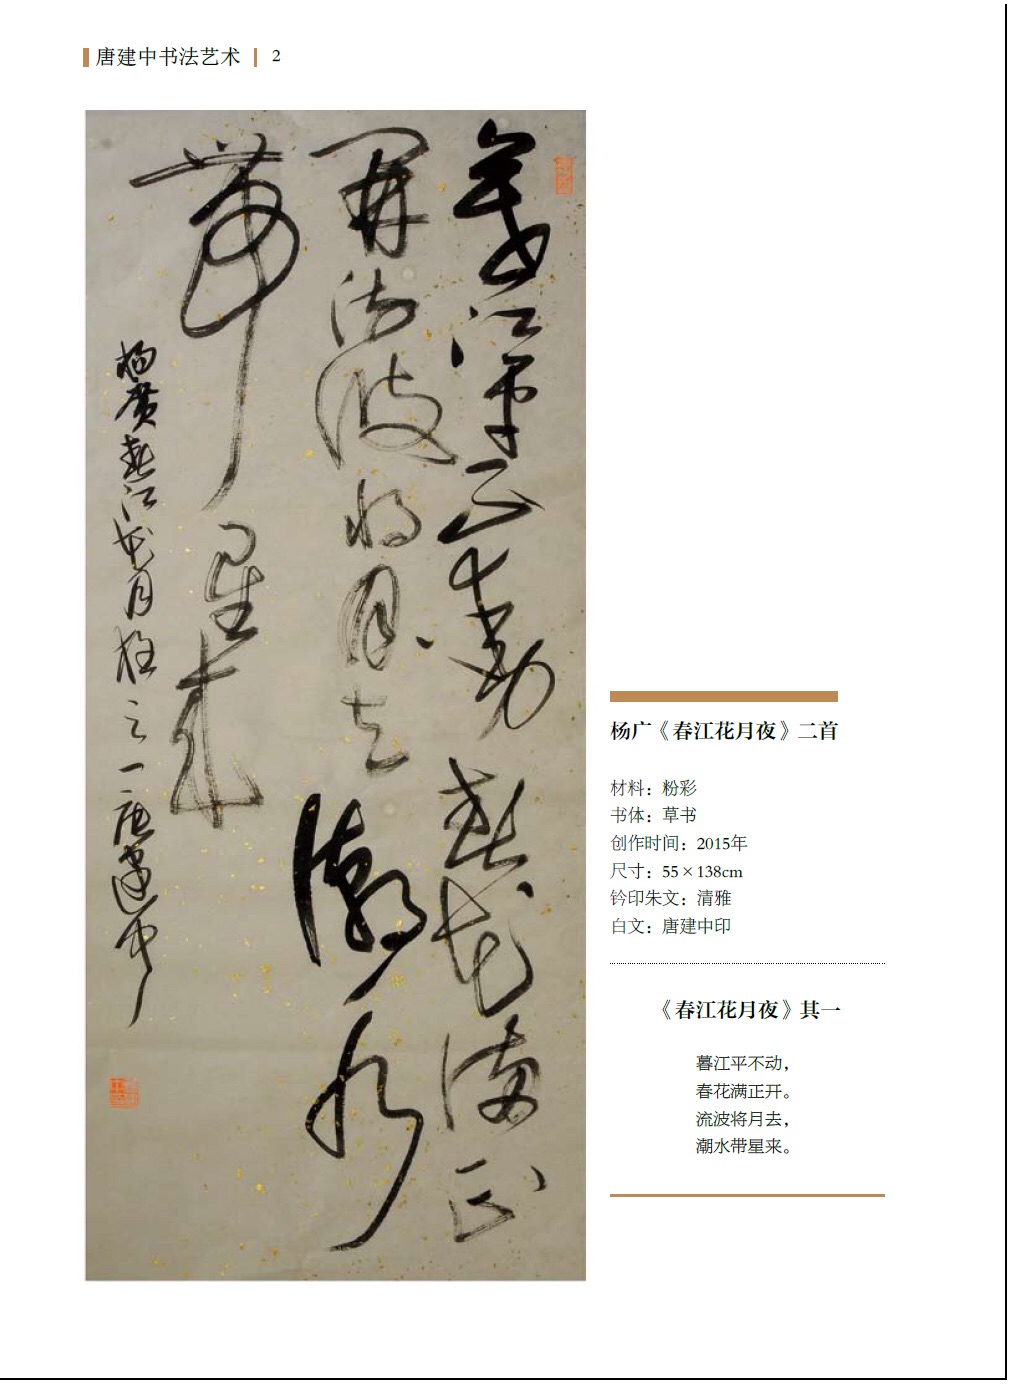 唐建中书法艺术 2
暮江平不動春花滿正
開流波将月去潮水
帶星来
楊廣春江花月夜之一唐建中
杨广《春江花月夜》二首
材料：粉彩
书体：草书
创作时间：2015年
尺寸：55×138cm
钤印朱文：清雅
白文：唐建中印
《春江花月夜》其一
暮江平不动，
春花满正开。
流波将月去，
潮水带星来。